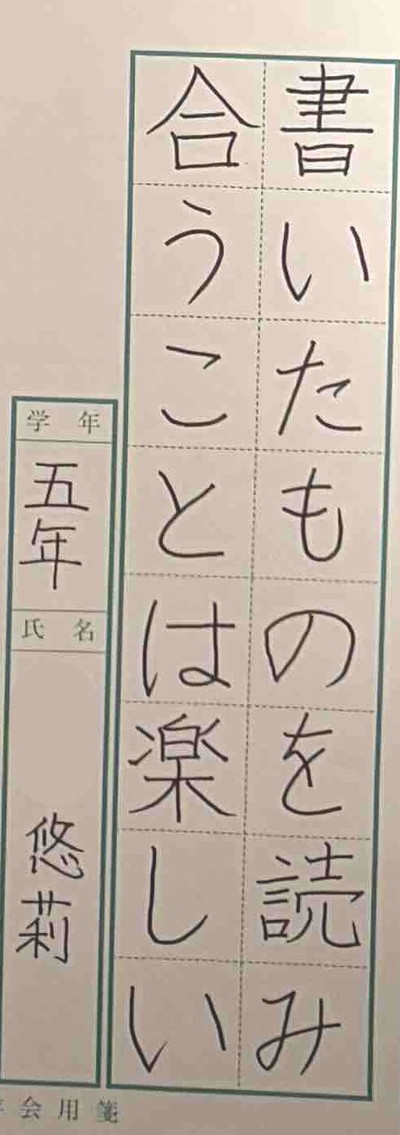 書いたものを読み
合うことは楽しい
学年
五年
氏名
悠莉
会用箋